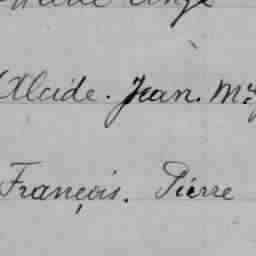 Ange
Alcide. Jean. M
François. Pierre